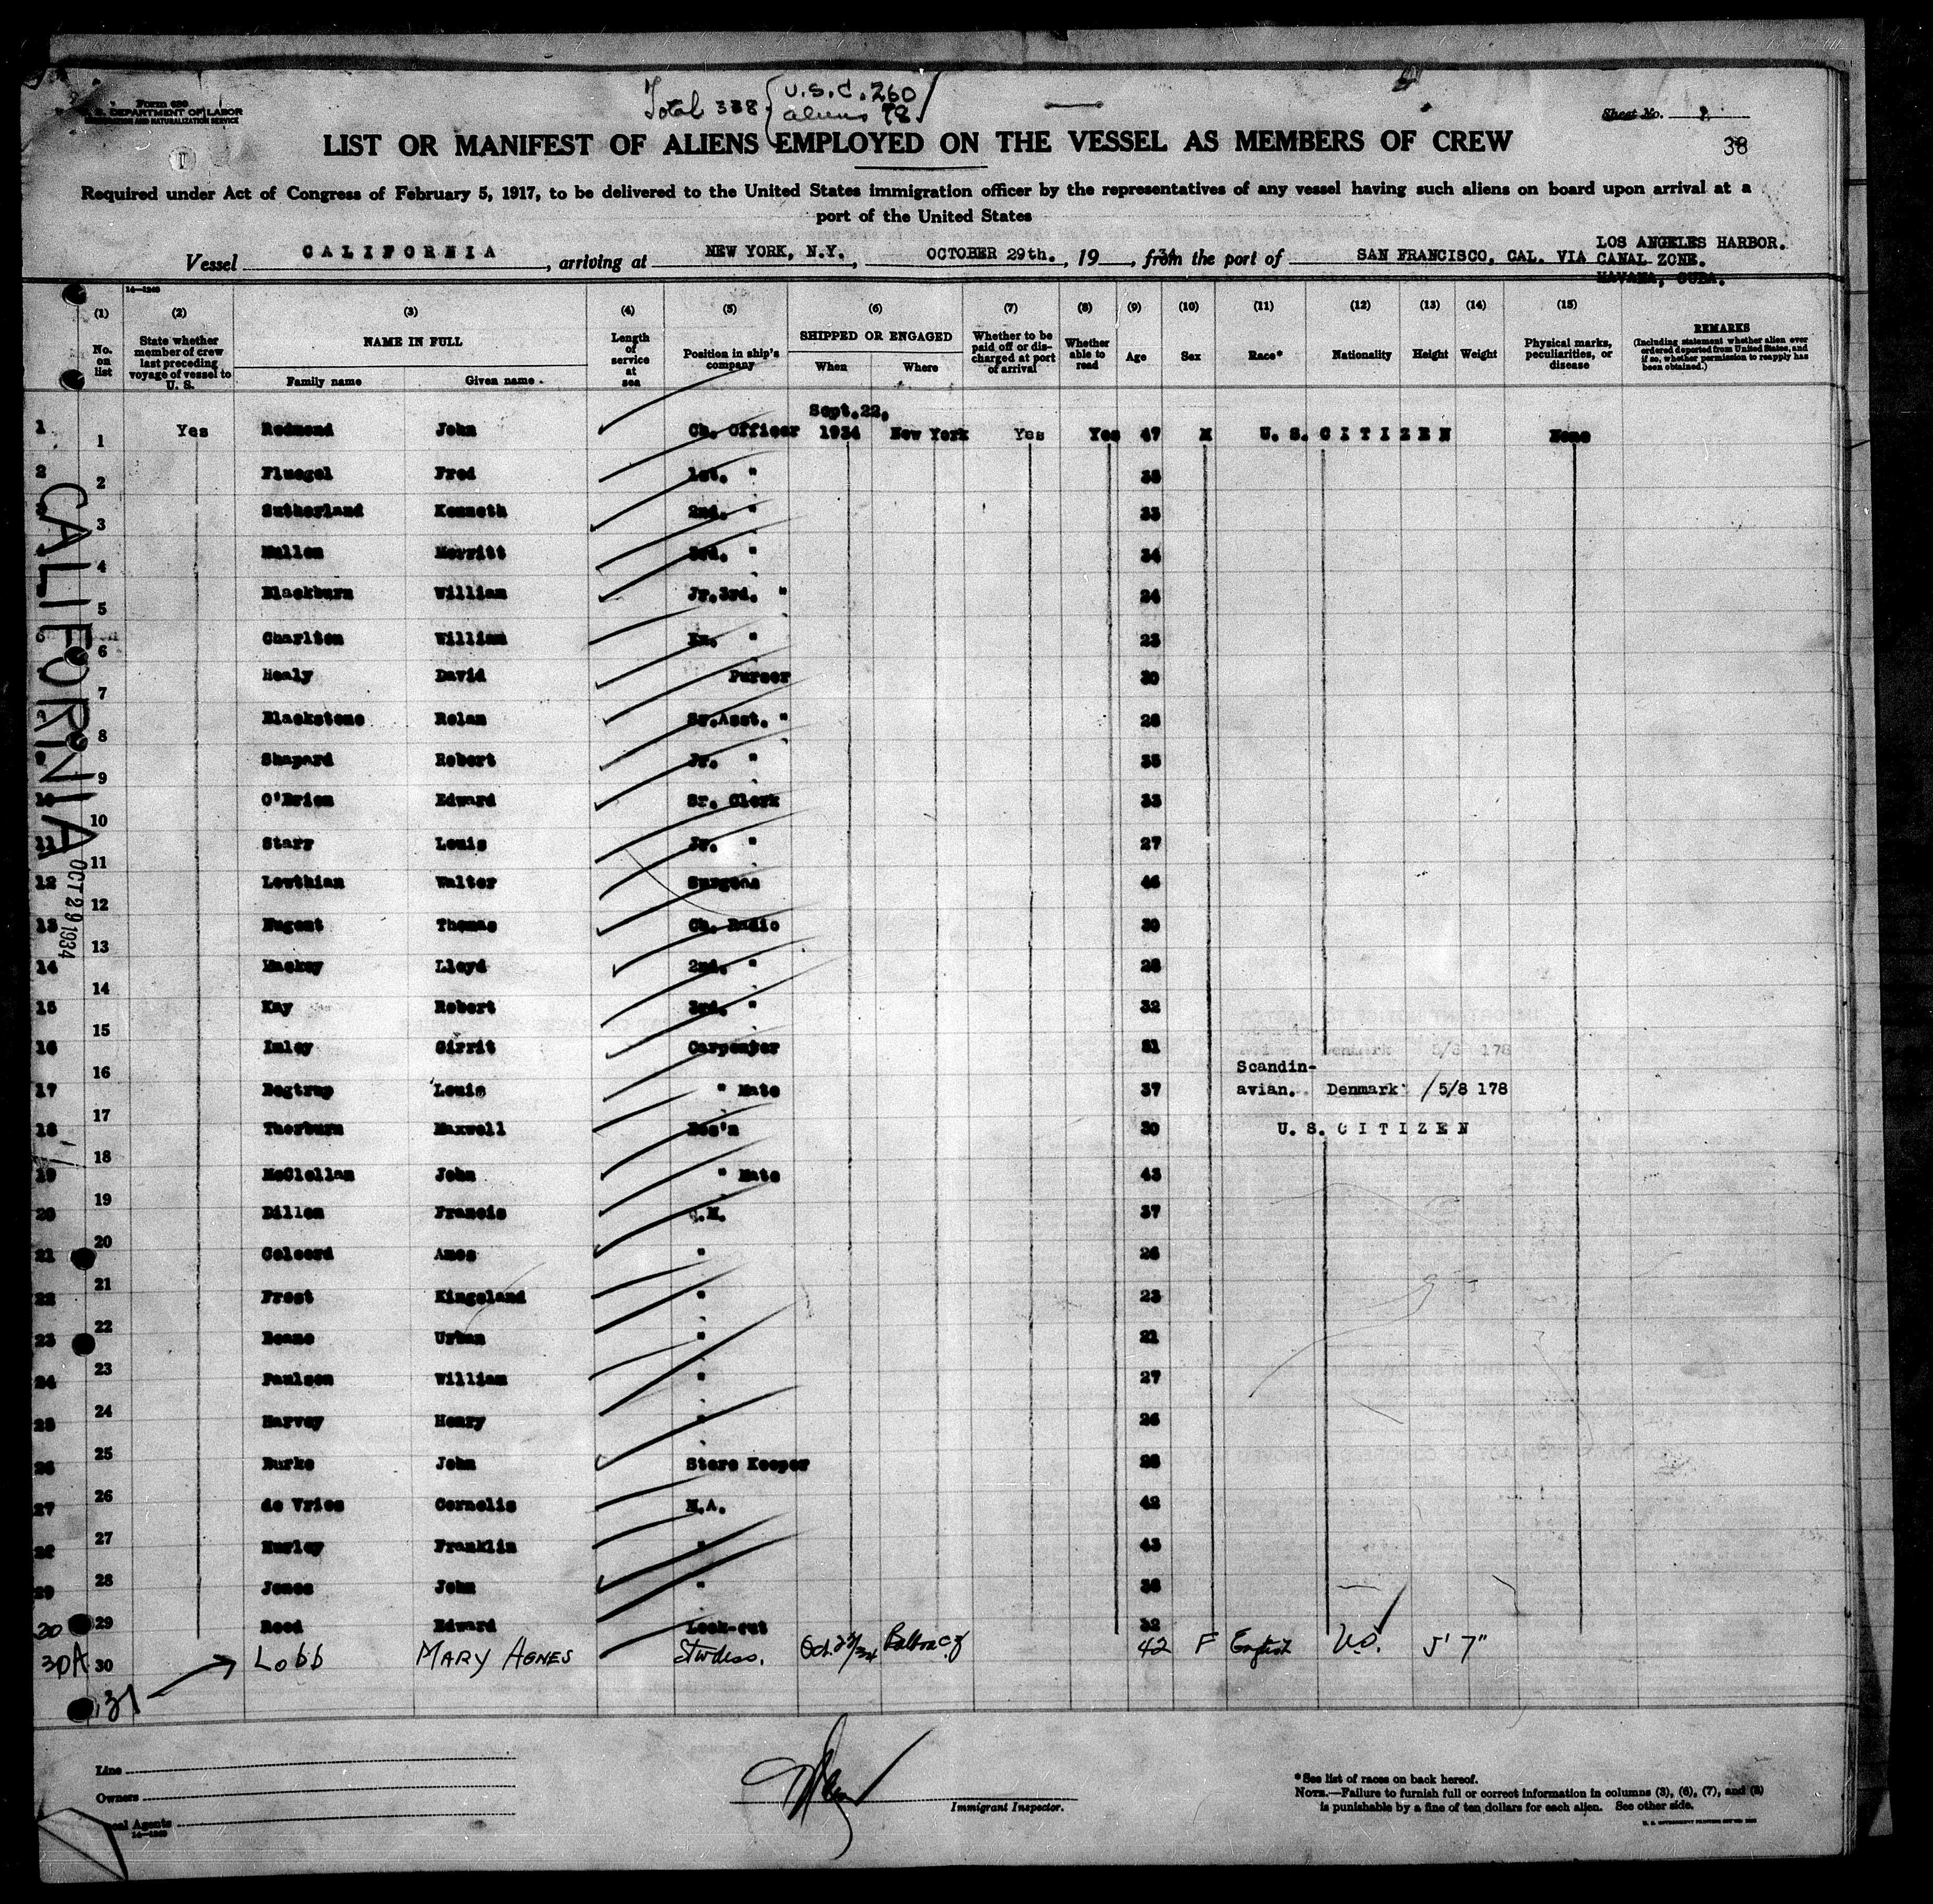 Total 338 { U.S.C. 260
aliens 78
Form 680
U. S. DEPARTMENT OF LABOR
IMMIGRATION AND NATURALIZATION SERVICE
Sheet No.
38
LIST OR MANIFEST OF ALIENS EMPLOYED ON THE VESSEL AS MEMBERS OF CREW
Required under Act of Congress of February 5, 1917, to be delivered to the United States immigration officer by the representatives of any vessel having such aliens on board upon arrival at a
port of the United States
Vessel CALIFORNIA, arriving at NEW YORK, N.Y., OCTOBER 29th., 1934, from the port of SAN FRANCISCO, CAL. VIA LOS ANGELES HARBOR.
CANAL ZONE.
HAVANA, CUBA.
14-1240
(1) (2) (3) (4) (5) (6) (7) (8) (9) (10) (11) (12) (13) (14) (15)
No. on list
State whether member of crew last preceding voyage of vessel to U. S.
NAME IN FULL
Family name Given name
Length of service at sea
Position in ship's company
SHIPPED OR ENGAGED
When Where
Whether to be paid off or discharged at port of arrival
Whether able to read
Age Sex Race* Nationality Height Weight
Physical marks, peculiarities, or disease
REMARKS
(Including statement whether alien ever ordered deported from United States, and if so, whether permission to reapply has been obtained.)
Sept.22,
1 1 Yes Redmond John Ch. Officer 1934 New York Yes Yes 47 M U. S. CITIZEN None
2 2 Fluegel Fred 1st. " 38
3 Sutherland Kenneth 2nd. " 33
4 4 Mullen Merritt 3rd. " 34
5 Blackburn William Jr.3rd. " 24
6 6 Charlton William Ex. " 23
7 Healy David Purser 30
8 Blackstone Rolan Sr.Asst. " 28
9 9 Shapard Robert Jr. " 35
10 10 O'Brien Edward Sr. Clerk 33
11 11 Starr Louis Jr. " 27
12 12 Lowthian Walter Surgeon 46
13 13 Nugent Thomas Ch. Radio 30
14 14 Mackey Lloyd 2nd. " 28
15 15 Kay Robert 3rd. " 32
16 16 Imley Girrit Carpenter 51
Scandin-
17 17 Begtrup Louis " Mate 37 avian. Denmark 5/8 178
18 18 Thorburn Maxwell Bos'n 30 U. S. CITIZEN
19 19 McClellan John " Mate 43
20 20 Dillon Francis Q.M. 37
21 21 Colcord Amos " 26
22 22 Frost Kingsland " 23
23 23 Beane Urban " 21
24 24 Paulson William " 27
25 25 Harvey Henry " 26
26 26 Burke John Store Keeper 28
27 27 de Vries Cornelis M.A. 42
28 28 Hurley Franklin " 43
29 29 Jones John " 38
30 Reed Edward Look-out 32
30A 30 Lobb MARY AGNES Stwdess. Oct. 34 Balboa CZ 42 F English U.S. 5' 7"
31
CALIFORNIA
OCT 29 1934
Line
Owners
Local Agents
14-1240
Immigrant Inspector.
*See list of races on back hereof.
NOTE.—Failure to furnish full or correct information in columns (3), (6), (7), and (8)
is punishable by a fine of ten dollars for each alien. See other side.